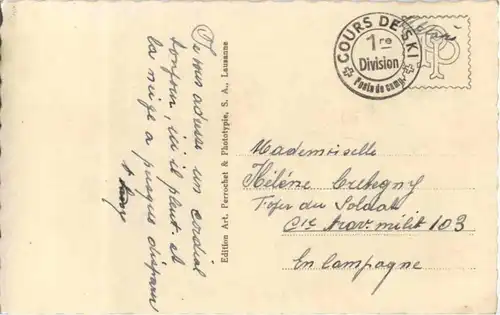 Je vous adresse un cordial
bonjour, ici il pleut et
la neige a presque disparu
Edition Art. Perrochet & Phototypie, S. A., Lausanne
COURS DE SKI
1re
Division
Poste de camp.
Mademoiselle
Hélène Cretegny
Foyer du Soldat
Cie trav. milit 103
En Campagne